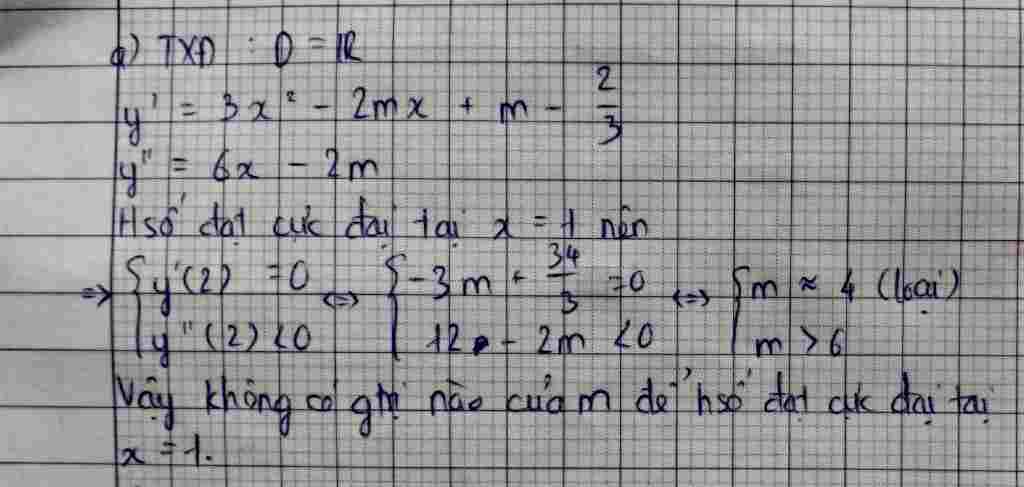 a) TXĐ : D = ℝ
y' = 3x² - 2mx + m - 2/3
y" = 6x - 2m
Hsố đạt cực đại tại x = 1 nên
=> { y'(2) = 0 <=> { -3m + 34/3 = 0 <=> { m ≈ 4 (loại)
y"(2) < 0 12 - 2m < 0 m > 6
Vậy không có gtrị nào của m để hsố đạt cực đại tại
x = 1.